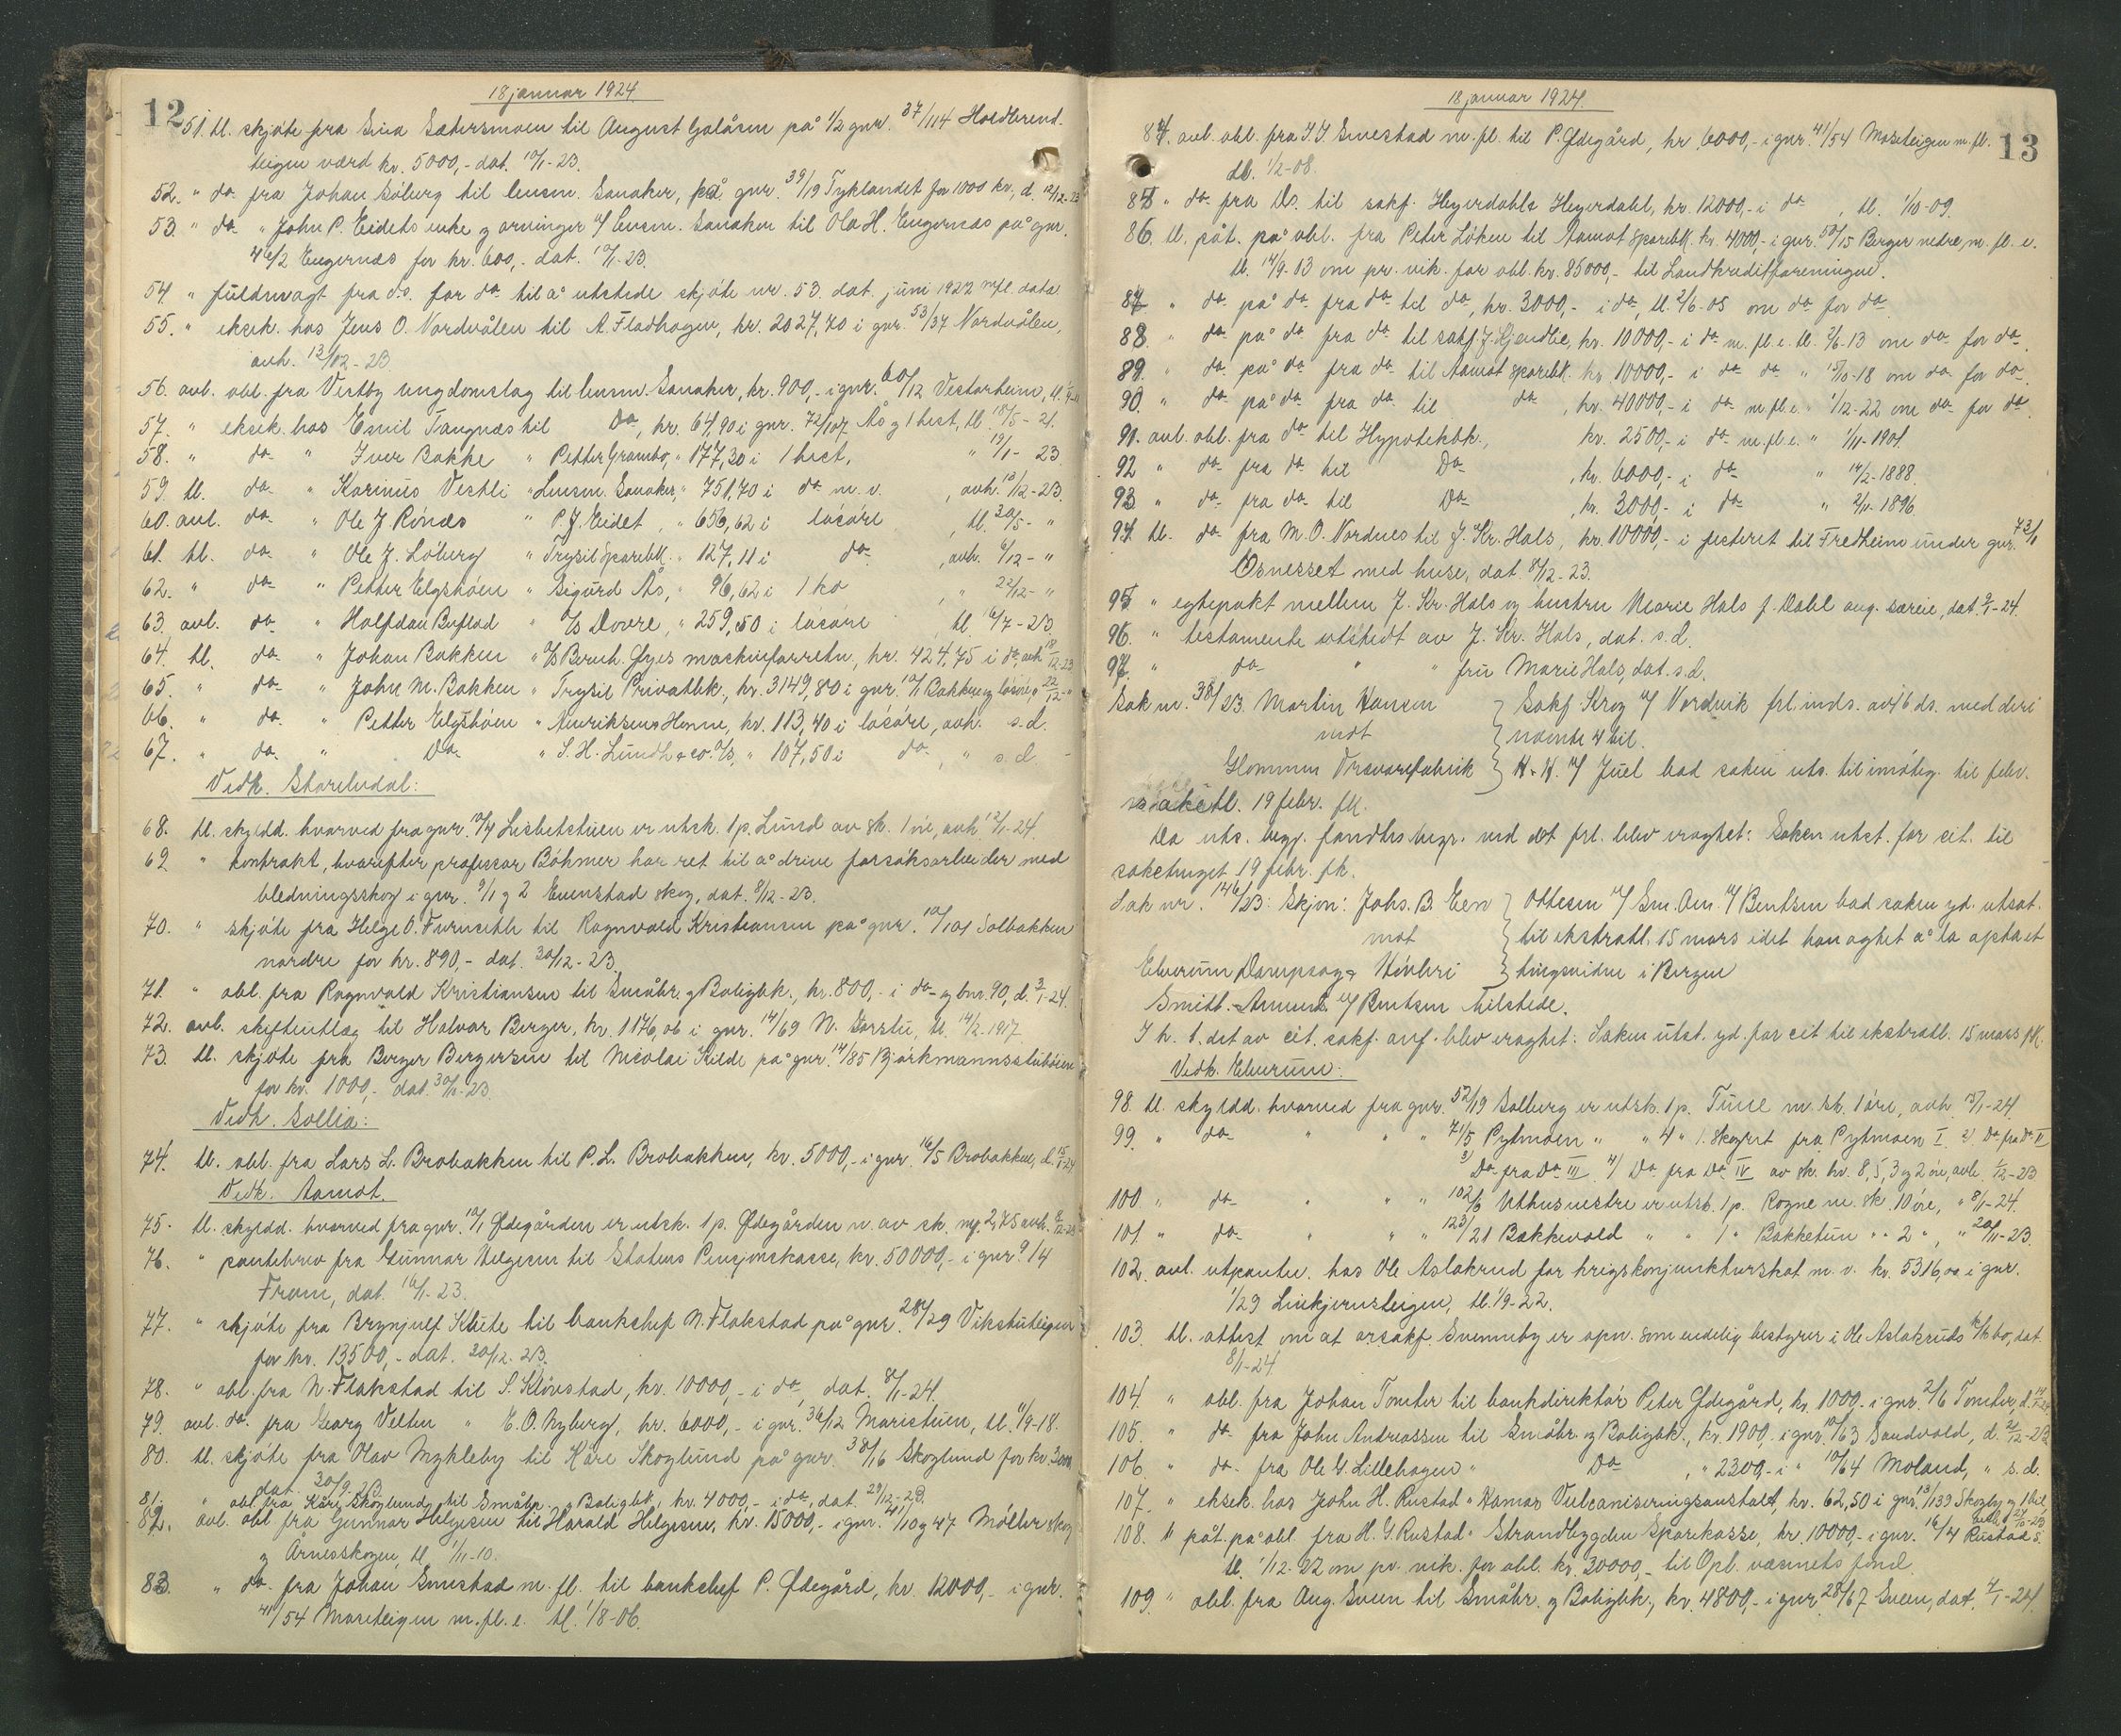 12
18 januar 1924
51. tl. skjøte fra Sina Sætersmoen til August Galåsen på 1/2 gnr. 37/114
teigen værd kr. 5000,- dat. 10/1-23.
52. " do fra Johan Søberg til lensm. Sanaker, på gnr. 39/19 Tyklandet for 1000 kr, d. 12/12-23
53. " do " John P. Eidets enke og arvinger v/ lensm. Sanaker til Ola H. Engernæs på gnr.
46/2 Engernæs for kr. 600,- dat. 10/1-23.
54. " fuldmagt fra d.s. for do til å utstede skjøte nr. 53. dat. juni 1922 mfl. data
55. " eksek. hos Jens O. Nordvålen til A. Fladhagen, kr. 2027,70 i gnr. 53/37 Nordvålen,
avh. 13/12-23
56. avl. obl. fra Vestby ungdomslag til lensm. Sanaker, kr. 900,- i gnr. 60/12 Vestarheim,
57. " eksek. hos Emil Tangnæs til Do, kr. 64,90 i gnr. 72/107 Ås og 1 hest, tl. 18/5-21.
58. " do " Iver Bakke " Petter Grambo, " 177,30 i 1 hest, " 19/1-23
59. tl. do " Karinus Vestli " Lensm. Sanaker, " 751,70 i do m.v. , avh. 13/12-23.
60. avl. do " Ole J. Rønæs " P.J. Eidet, " 656,62 i løsøre , tl. 30/5- "
61. tl. do " Ole J. Løberg " Trysil Sparebk. " 127,11 i do , avh. 6/12- "
62. " do " Petter Elgshøen " Sigurd Ås, " 96,62 i 1 ko , " 22/12- "
63. avl. do " Halfdan Buflod " A/S Dovre, " 259,50 i løsøre , tl. 16/7-23
64. tl. do " Johan Bakken " A/S Bernh. Gjes maskinforretn, kr. 424,75 i do, avh. 18/12-23
65. " do " John M. Bakken " Trysil Privatbk., kr. 3149,80 i gnr. 10/1 Bakken og løsøre, " 22/12- "
66. " do " Petter Elgshøen " Henriksens Henne, kr. 113,40 i løsøre, avh. s.d.
67. " do " Do " S.H. Lundh & co. A/S, " 107,50 i do , " s.d.
Vedk. Storelvdal:
68. tl. skyldd. hvorved fra gnr. 13/4 Lisbetstuen er utsk. 1 p. Lund av sk. 1 øre, avh 12/1-24.
69. " kontrakt, hvorefter professor Böhmer har ret til å drive forsøksarbeider med
bledningsskog i gnr. 9/1 og 2 Evenstad skog, dat. 8/12-23.
70. " skjøte fra Helge O. Furuseth til Ragnvald Kristiansen på gnr. 10/101 Solbakken
nordre for kr. 890,- dat. 30/12-23.
71. " obl. fra Ragnvald Kristiansen til Småbr. og Boligbk., kr. 800,- i do og bnr. 90, d. 3/1-24.
72. avl. skifteutlæg til Halvor Berger, kr. 1176,06 i gnr. 14/69 N. , tl. 14/2-1917
73. tl. skjøte fra Berger Bergersen til Nicolai Kilde på gnr. 14/85 Bjørkmannsstubøien
for kr. 1000,- dat. 30/11-23.
Vedk. Sollia:
74. tl. obl. fra Lars L. Brobakken til P.L. Brobakken, kr. 5000,- i gnr. 16/5 Brobakken, d. 15/1-24
Vedk. Aamot.
75. tl. skyldd. hvorved fra gnr. 10/1 Ødegården er utsk. 1 p. Ødegården n. av sk. mrk. 2,75 avh.
76. " pantebrev fra Gunnar Helgesen til Statens Pensjonskasse, kr. 50000,- i gnr. 9/4
From, dat. 16/1-23.
77. " skjøte fra Brynjulf Klüte til banksjef N. Flakstad på gnr. 28/29 Vikstuteigen
for kr. 13500,- dat. 20/12-23.
78. " obl. fra N. Flakstad til S. Kløvstad, kr. 10000,- i do, dat. 8/1-24.
79. avl. do. fra Georg Velten " E.O. Nyberg, kr. 6000,- i gnr. 36/12 Maristuen, tl. 11/9-18.
80. tl. skjøte fra Olav Mykleby til Kåre Skoglund på gnr. 38/16 Skoglund for kr. 3000
dat. 30/9-23.
81. " obl. fra Kåre Skoglund til Småbr. og Boligbk., kr. 4000,- i do, dat. 29/12-23.
82. avl. obl fra Gunnar Helgesen til Harald Helgesen, kr. 15000,- i gnr. 41/10 og 47 Møller skog
og Årnesskogen, tl. 1/11-10.
83. " do. fra Johan Smestad m. fl. til banksjef P. Ødegård, kr. 12000,- i gnr.
41/54 Moseteigen m. fl. e. tl. 1/8-06.
13
18 januar 1924.
84. avl. obl. fra J.J. Smestad m. fl. til P. Ødegård, kr. 6000,- i gnr. 41/54 Moseteigen m. fl.
tl. 1/2-08.
85 " do. fra Ds. til sakf. Heyerdahls Heyerdahl, kr. 12000,- i do , tl. 1/10-09.
86. tl. påt. på obl. fra Peter Løken til Aamot Sparebk. kr. 4000,- i gnr. 50/15 Berger nedre, m. fl. e.
tl. 14/9-03 om pr. vik. for obl. kr. 85000,- til Landkreditforeningen.
87 " do på do fra do til do, kr. 3000,- i do, tl. 2/6-05 om do for do
88. " do på do fra do til sakf. J. Gjendlie, kr. 10000,- i do m. fl. e. tl. 2/6-13 om do for do.
89. " do på do fra do til Aamot Sparebk. kr. 10000,- i do do " 15/10-18 om do for do.
90. " do på do fra do til do , kr. 40000,- i do m. fl. e. " 1/12-22 om do for do.
91. avl. obl. fra do til Hypotekbk., kr. 2500,- i do m. fl. e. " 1/11-1901.
92 " do fra do til Do , kr. 6000,- i do " 14/2-1888.
93 " do fra do til Do , kr. 3000,- i do " 2/11-1896
94. tl. do fra M.O. Nordnes til J. Kr. Hals, kr. 10000,- i festeret til Fredheim under gnr. 73/1
Osnesset med huse, dat. 8/12-23.
95 " egtepakt mellem J. Kr. Hals og hustru Marie Hals f. Dahl ang. særeie, dat. 9/1-24.
96. " testamente utstedt av J. Kr. Hals, dat. s.d.
97. " do " " fru Marie Hals, dat. s.d.
Sak nr. 38/23. Martin Hansen
mot
Glommen Trævarefabrik
Sakf. Krog v/ Nordvik frl. inds. av 16 ds. med deri
nævnte 4 bil.
H. H. v/ Juel bad saken uts. til imøteg. til febr.
saketl. 19 febr. fk.
Da uts. begj. fandtes begr. ved det frl. blev eragtet: Saken utst. for cit. til
saketinget 19 febr. fk.
Sak nr. 146/23: Skjøn: Johs. B. Een
mot
Elverum Dampsag & Høvleri
Ottesen v/ Sm. Am. v/ Bentsen bad saken yd. utsat.
til ekstratl. 15 mars idet han agtet å la opta et
tingsvidne i Bergen
Smitt-Amundsen v/ Bentsen tilstede.
I h. t. det av cit. sakf. anf. blev eragtet: Saken utst. yd. for cit til ekstratl. 15 mars fk.
Vedk. Elverum:
98. tl. skyldd. hvorved fra gnr. 52/19 Solberg er utsk. 1 p. Tune m. sk. 1 øre, avh. 15/1-24
99. " do " " " 71/5 Pytmoen " " 4 " 1. Skogret fra Pytmoen I 2) Do fra Do II
3) Do fra Do III 4) Do fra Do IV av sk. hv. 8, 5, 3 og 2 øre, avh. 1/12-23
100 " do " " " 102/6 Uthusvestre er utsk. 1 p. Rogne m. sk. 10 øre, " 8/1-24.
101 " do " " " 123/21 Bækkevold " " 1 " Bakketun " " 2 " , " 20/11-23.
102. avl. utpantn. hos Ole Aslakrud for krigskonjunkturskat m. v. kr. 5316,00 i gnr.
1/29 Linkjernsteigen, tl. 1/9-22.
103. tl. attest om at orsakf. Svenneby er opn. som endelig bestyrer i Ole Aslakruds k/kbo, dat.
8/1-24.
104. " obl. fra Johan Tomter til bankdirektør Peter Ødegård, kr. 1000,- i gnr. 2/6 Tomter, d. 14/1-24
105. " do fra John Andreassen til Småbr. og Boligbk., kr. 1900,- i gnr. 10/63 Sandvold, d. 21/12-23
106. " do. fra Ole G. Lillehagen " Do , " 2300,- i " 10/64 Moland, " s.d.
107. " eksek. hos John H. Rustad " Hamar Vulcaniseringsanstalt, kr. 62,50 i gnr. 13/139 Skogly og 1 bil,
108. " påt. på obl. fra H. G. Rustad " Strandbygden Sparekasse, kr. 10000,- i gnr. 16/4 Rustad s.
tl. 1/12-22 om pr. vik. for obl. kr. 30000,- til Opl. væsenets fond.
109. " obl. fra Aug. Sveen til Småbr. og Boligbk., kr. 4800,- i gnr. 28/67 Sveen, dat. 4/1-24.